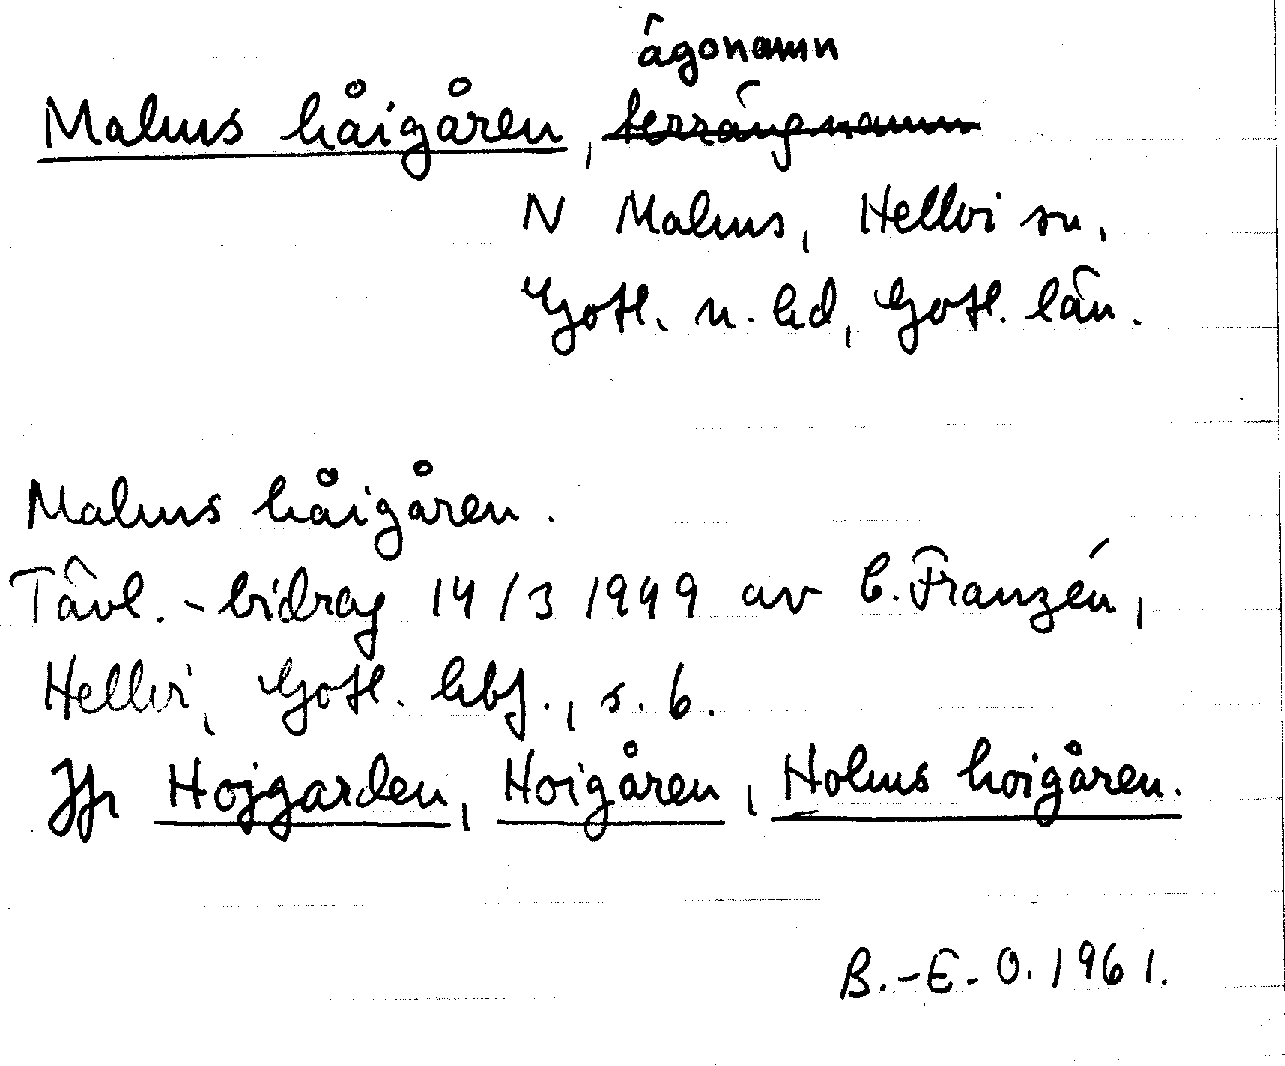 ägonamn
Malms håigåren, terrängnamn
N Malms, Hellvi sn,
Gotl. n. hd, Gotl. län.
Malms håigåren.
Tävl.-bidrag 14/3 1949 av C. Franzén,
Hellvi, Gotl. hbf., s. 6.
Jfr Hojgarden, Hoigåren, Holms hoigåren.
B.-E. O. 1961.